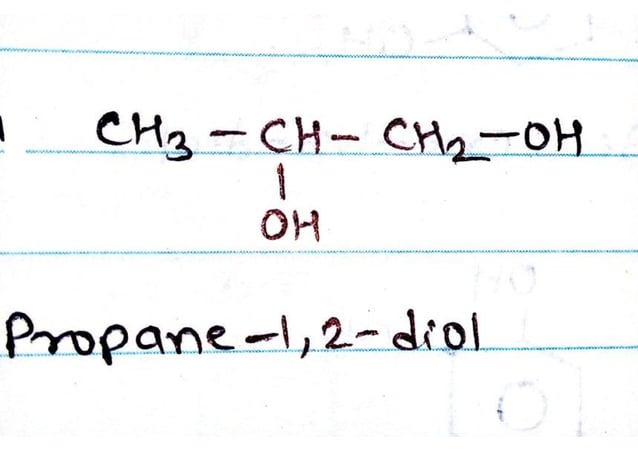 CH₃ – CH – CH₂ – OH
|
OH
Propane-1,2-diol